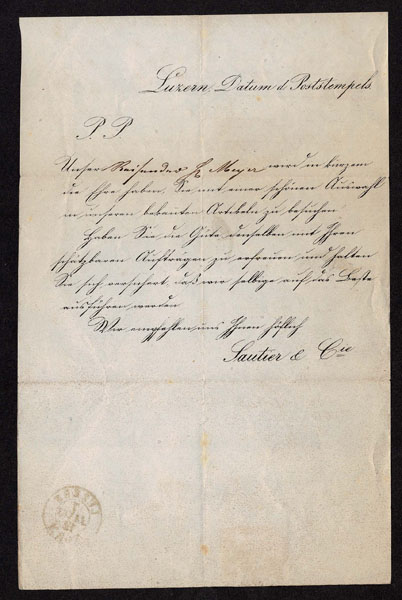 Luzern, Datum d. Poststempels.
P. P.
Unser Reisender H. Meyer wird in kurzem
die Ehre haben, Sie mit einer schönen Auswahl
in unseren bekannten Artikeln zu besuchen.
Haben Sie die Güte denselben mit Ihren
schätzbaren Aufträgen zu erfreuen und halten
Sie sich versichert, daß wir selbige auf das Beste
ausführen werden.
Wir empfehlen uns Ihnen höflich
Sautier & Cie